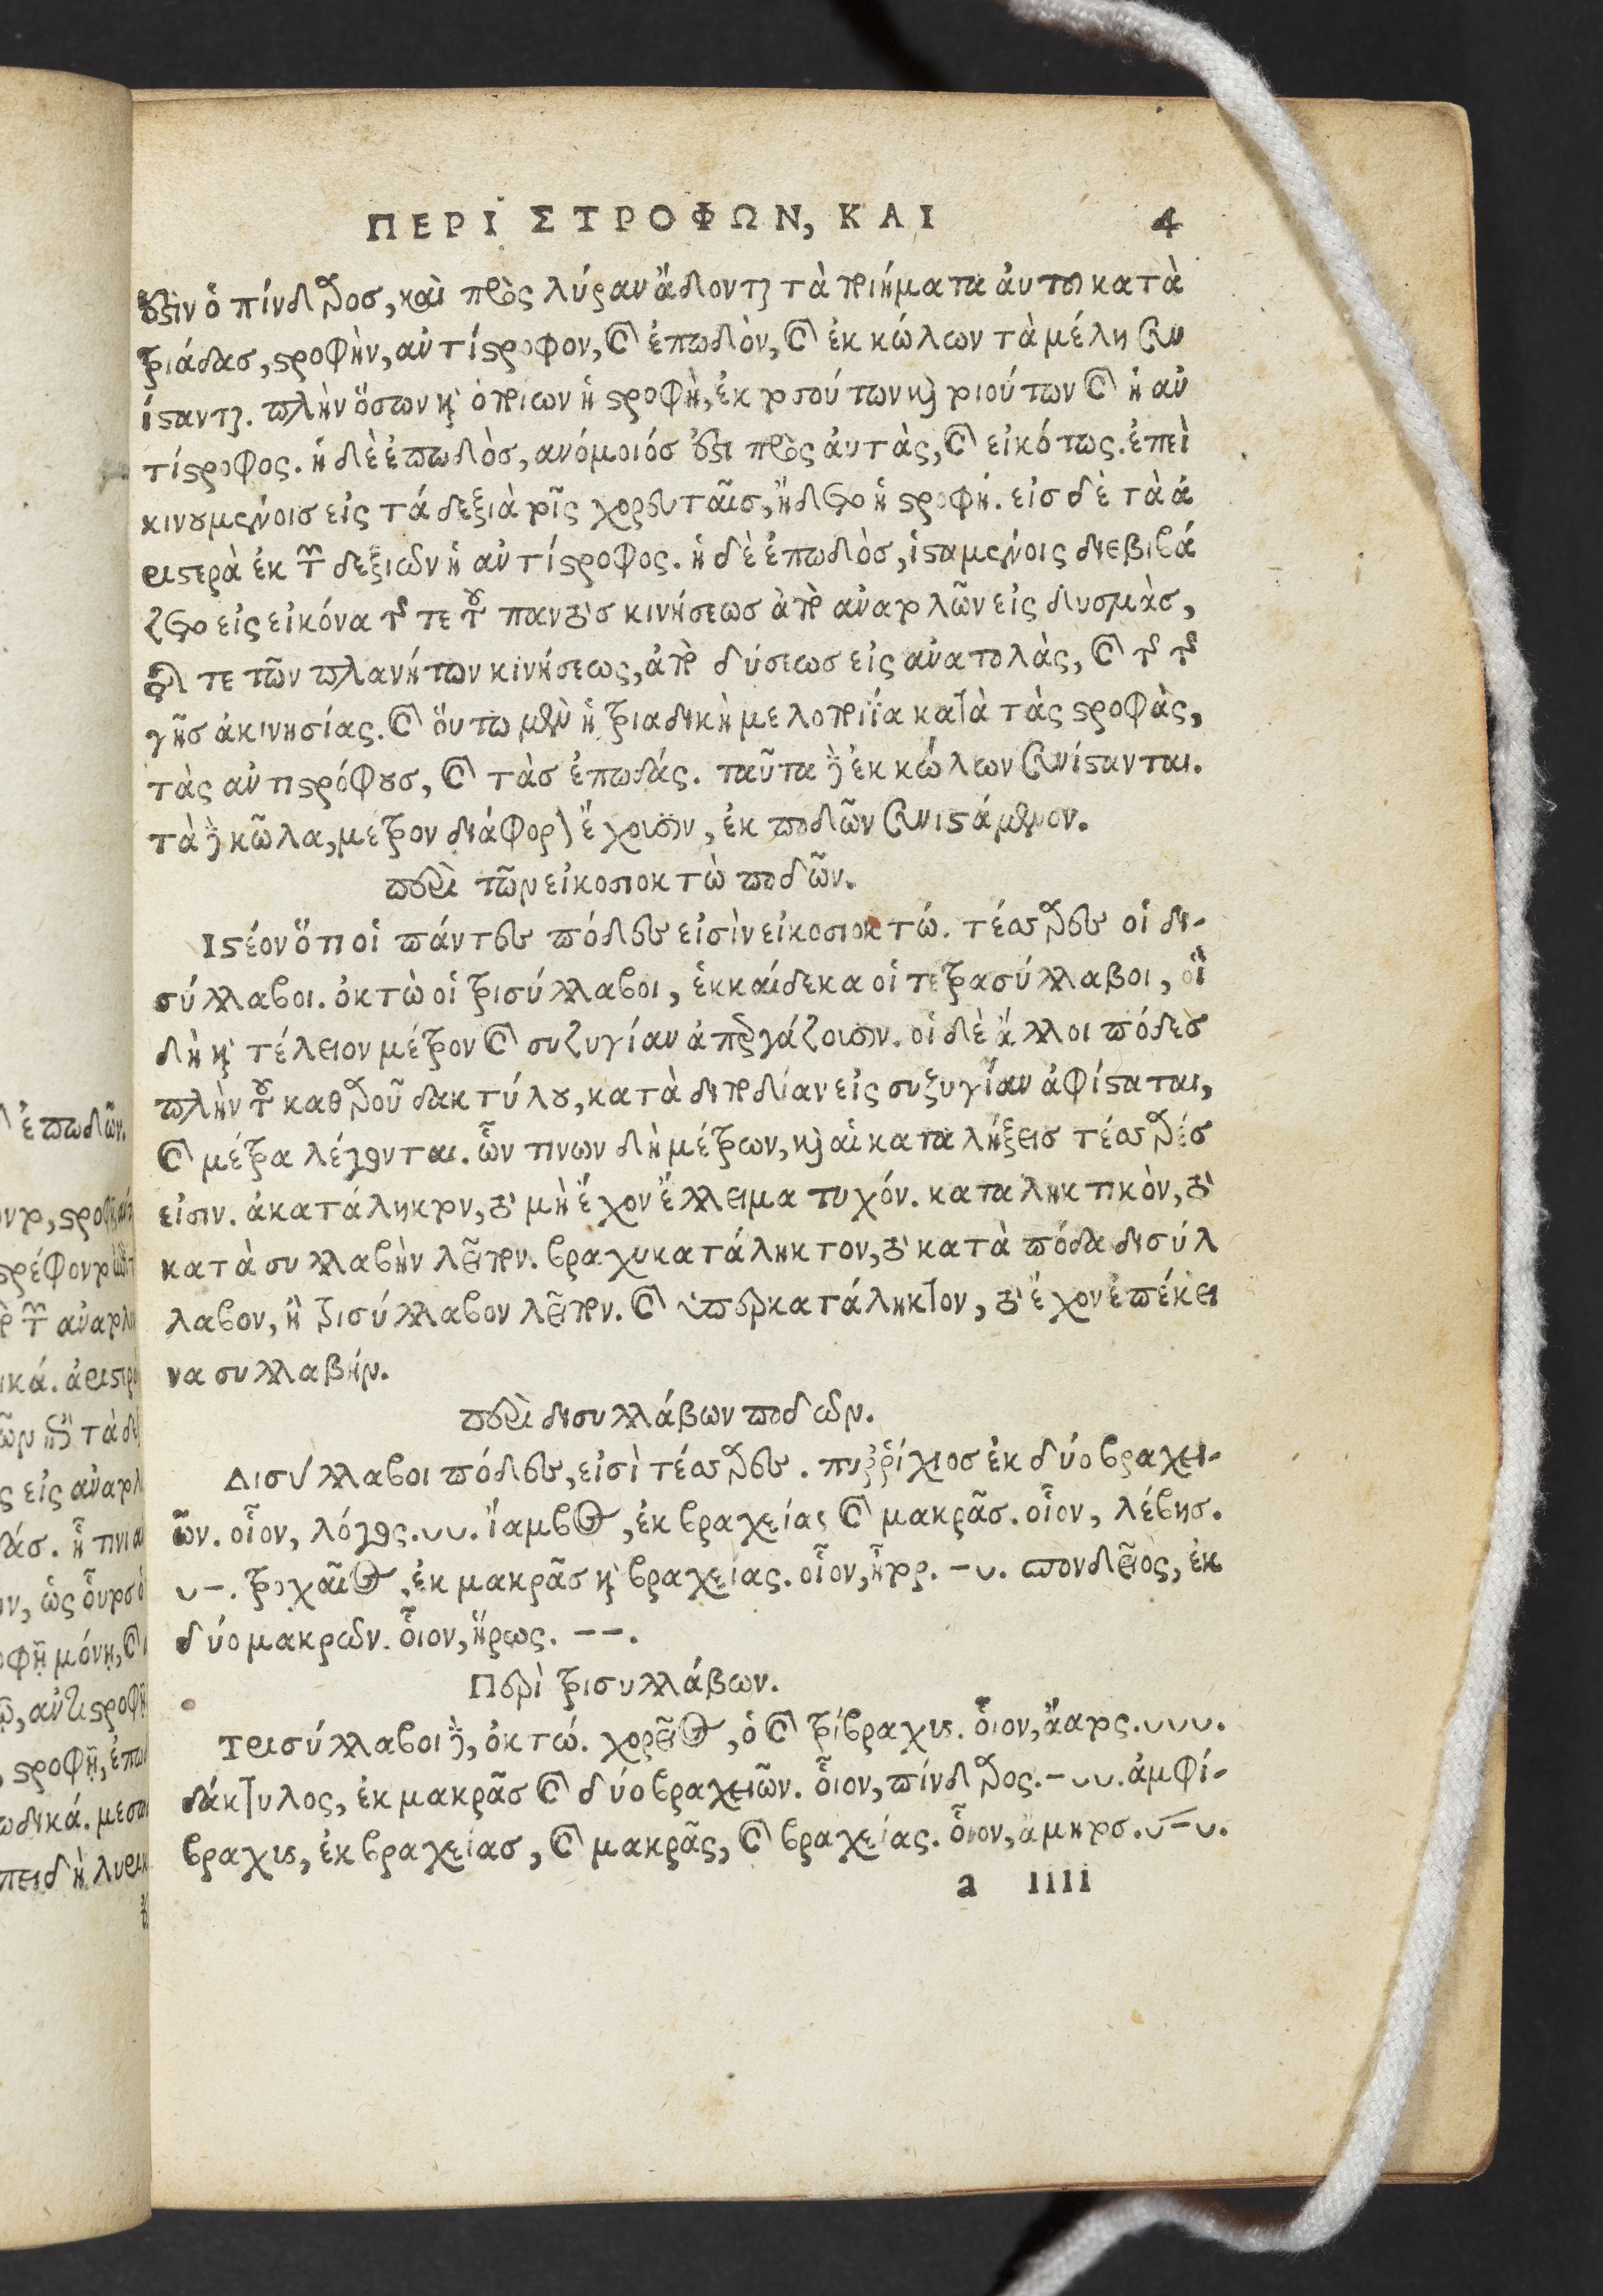 ΠΕΡΙ ΣΤΡΟΦΩΝ, ΚΑΙ 4
ἐστὶν ὁ πίνδαρος, καὶ πρὸς λύραν ᾄδονται τὰ ποιήματα ἀυτου κατὰ
τριάδας, στροφὴν, ἀντίστροφον, καὶ ἐπωδὸν, καὶ ἐκ κώλων τὰ μέλη συν
ίστανται. πλὴν ὅσων καὶ ὁποίων ἡ στροφὴ, ἐκ τοσούτων καὶ τοιούτων καὶ ἡ ἀν
τίστροφος. ἡ δὲ ἐπωδὸς, ανόμοιός ἐστι πρὸς ἀυτὰς, καὶ εἰκότως. ἐπεὶ
κινουμένοις εἰς τά δεξιὰ τοῖς χορευταῖς, ᾔδετο ἡ στροφή. εἰς δὲ τὰ ἀ
ριστερὰ ἐκ τῶν δεξιων ἡ ἀντίστροφος. ἡ δὲ ἐπωδὸς, ἱσταμένοις διεβιβά
ζετο εἰς εἰκόνα τῆς τε τοῦ παντὸς κινήσεως ἀπὸ ἀνατολῶν εἰς δυσμὰς,
τῆς τε τῶν πλανήτων κινήσεως, ἀπὸ δύσεως εἰς ἀνατολὰς, καὶ τῆς τῆς
γῆς ἀκινησίας. καὶ ὅυτω μὲν ἡ τριαδικὴ μελοποιΐα κατὰ τὰς στροφὰς,
τὰς ἀντιστρόφους, καὶ τὰς ἐπωδάς. ταῦτα δὲ ἐκ κώλων συνίστανται.
τὰ δὲ κῶλα, μέτρον διάφορον ἔχουσιν, ἐκ ποδῶν συνιστάμενον.
περὶ τῶν εἰκοσιοκτὼ ποδῶν.
Ιστέον ὅτι οἱ πάντες πόδες εἰσὶν εἰκοσιοκτώ. τέσσαρες οἱ δι-
σύλλαβοι. ὀκτὼ οἱ τρισύλλαβοι, ἑκκαίδεκα οἱ τετρασύλλαβοι, οἳ
δὴ καὶ τέλειον μέτρον καὶ συζυγίαν ἀπεργάζουσιν. οἱ δὲ ἄλλοι πόδες
πλὴν τοῦ καθαροῦ δακτύλου, κατὰ διποδίαν εἰς συζυγίαν ἀφίσταται,
καὶ μέτρα λέγονται. ὧν τινων δὴ μέτρων, καὶ αἱ καταλήξεις τέσσαρές
εἰσιν. ἀκατάληκτον, τὸ μὴ ἔχον ἔλλειμα τυχόν. καταληκτικὸν, τὸ
κατὰ συλλαβὴν λεῖπον. βραχυκατάληκτον, τὸ κατὰ πόδα δισύλ
λαβον, ἢ τρισύλλαβον λεῖπον. καὶ ὑπερκατάληκτον, τὸ ἔχον ἐπέκει
να συλλαβήν.
περὶ δισυλλάβων ποδων.
Δισύλλαβοι πόδες, εἰσὶ τέσσαρες. πυῤῥίχιος ἐκ δύο βραχει-
ῶν. οἷον, λόγος. ᴗᴗ. ἴαμβος, ἐκ βραχείας καὶ μακρᾶς. οἷον, λέβης.
ᴗ–. τροχαῖος, ἐκ μακρᾶς καὶ βραχείας. οἷον, ἦτορ. –ᴗ. σπονδεῖος, ἐκ
δύο μακρων. ὗιον, ἥρως. – –.
Περὶ τρισυλλάβων.
Τρισύλλαβοι δὲ, ὀκτώ. χορεῖος, ὁ καὶ τρίβραχυς. οἷον, ἄατος. ᴗᴗᴗ.
δάκτυλος, ἐκ μακρᾶς καὶ δύο βραχειῶν. οἷον, πίνδαρος. –ᴗᴗ. ἀμφί-
βραχυς, ἐκ βραχείας, καὶ μακρᾶς, καὶ βραχείας. οἷον, ἄμητος. ᴗ–ᴗ.
a iiii